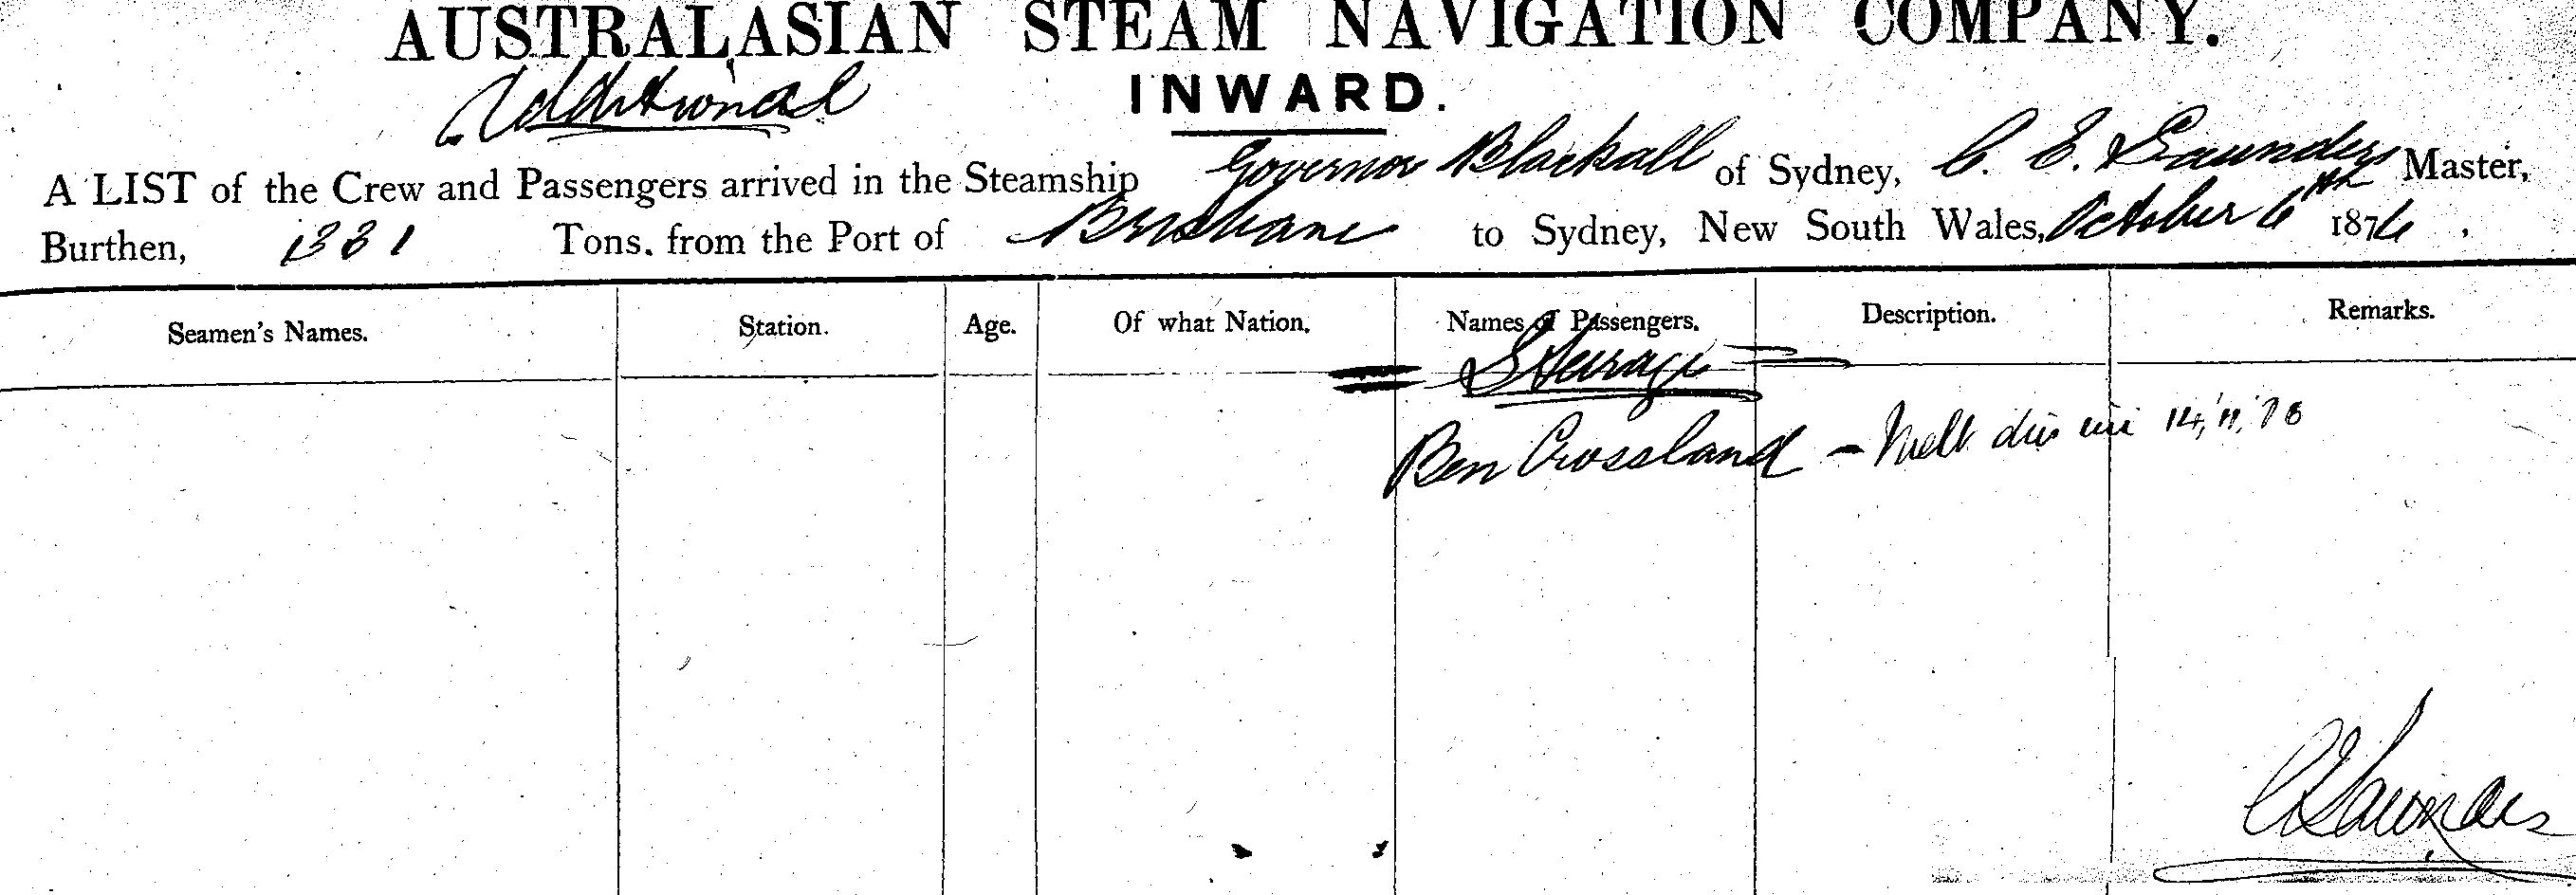 AUSTRALASIAN STEAM NAVIGATION COMPANY.
Additional
INWARD.
A LIST of the Crew and Passengers arrived in the Steamship Governor Blackall of Sydney, C. E. Saunders Master,
Burthen, 1331 Tons. from the Port of Brisbane to Sydney, New South Wales, October 6th 1876.
Seamen's Names. Station. Age. Of what Nation. Names of Passengers. Description. Remarks.
Steerage
Ben Crossland –
C E Saunders